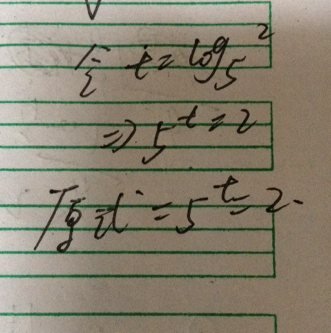 令 t = log₅2
⇒ 5^t = 2
原式 = 5^t = 2.